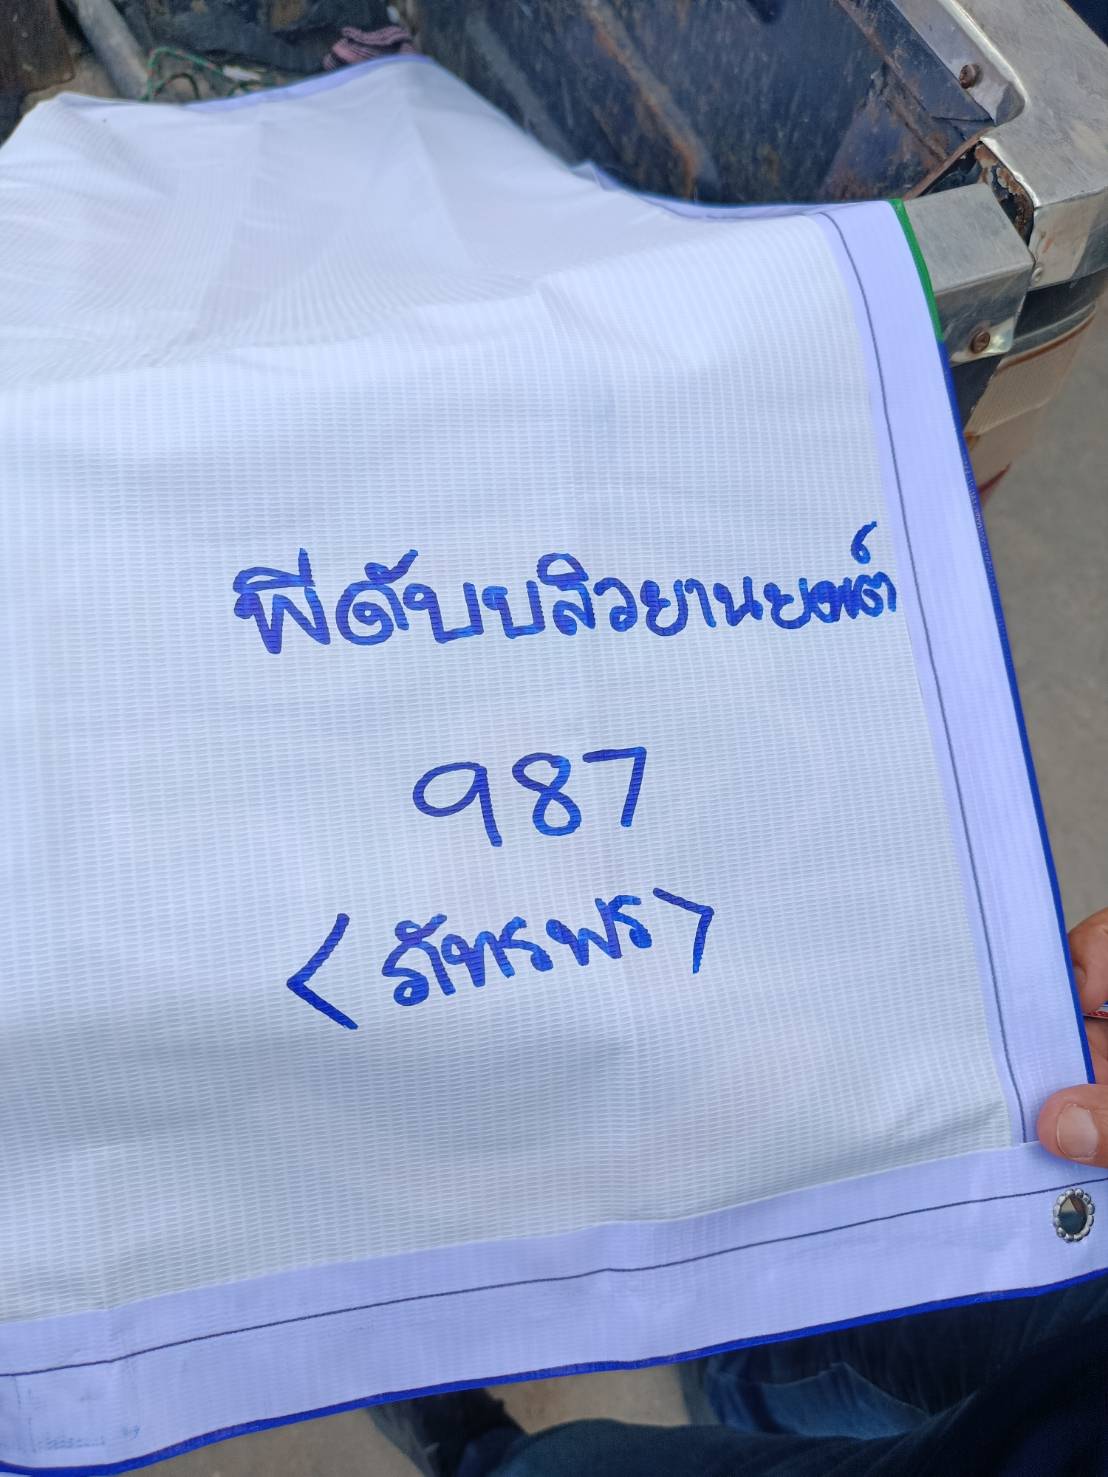 พีดับบลิวยานยนต์
987
<ภัทรพร>